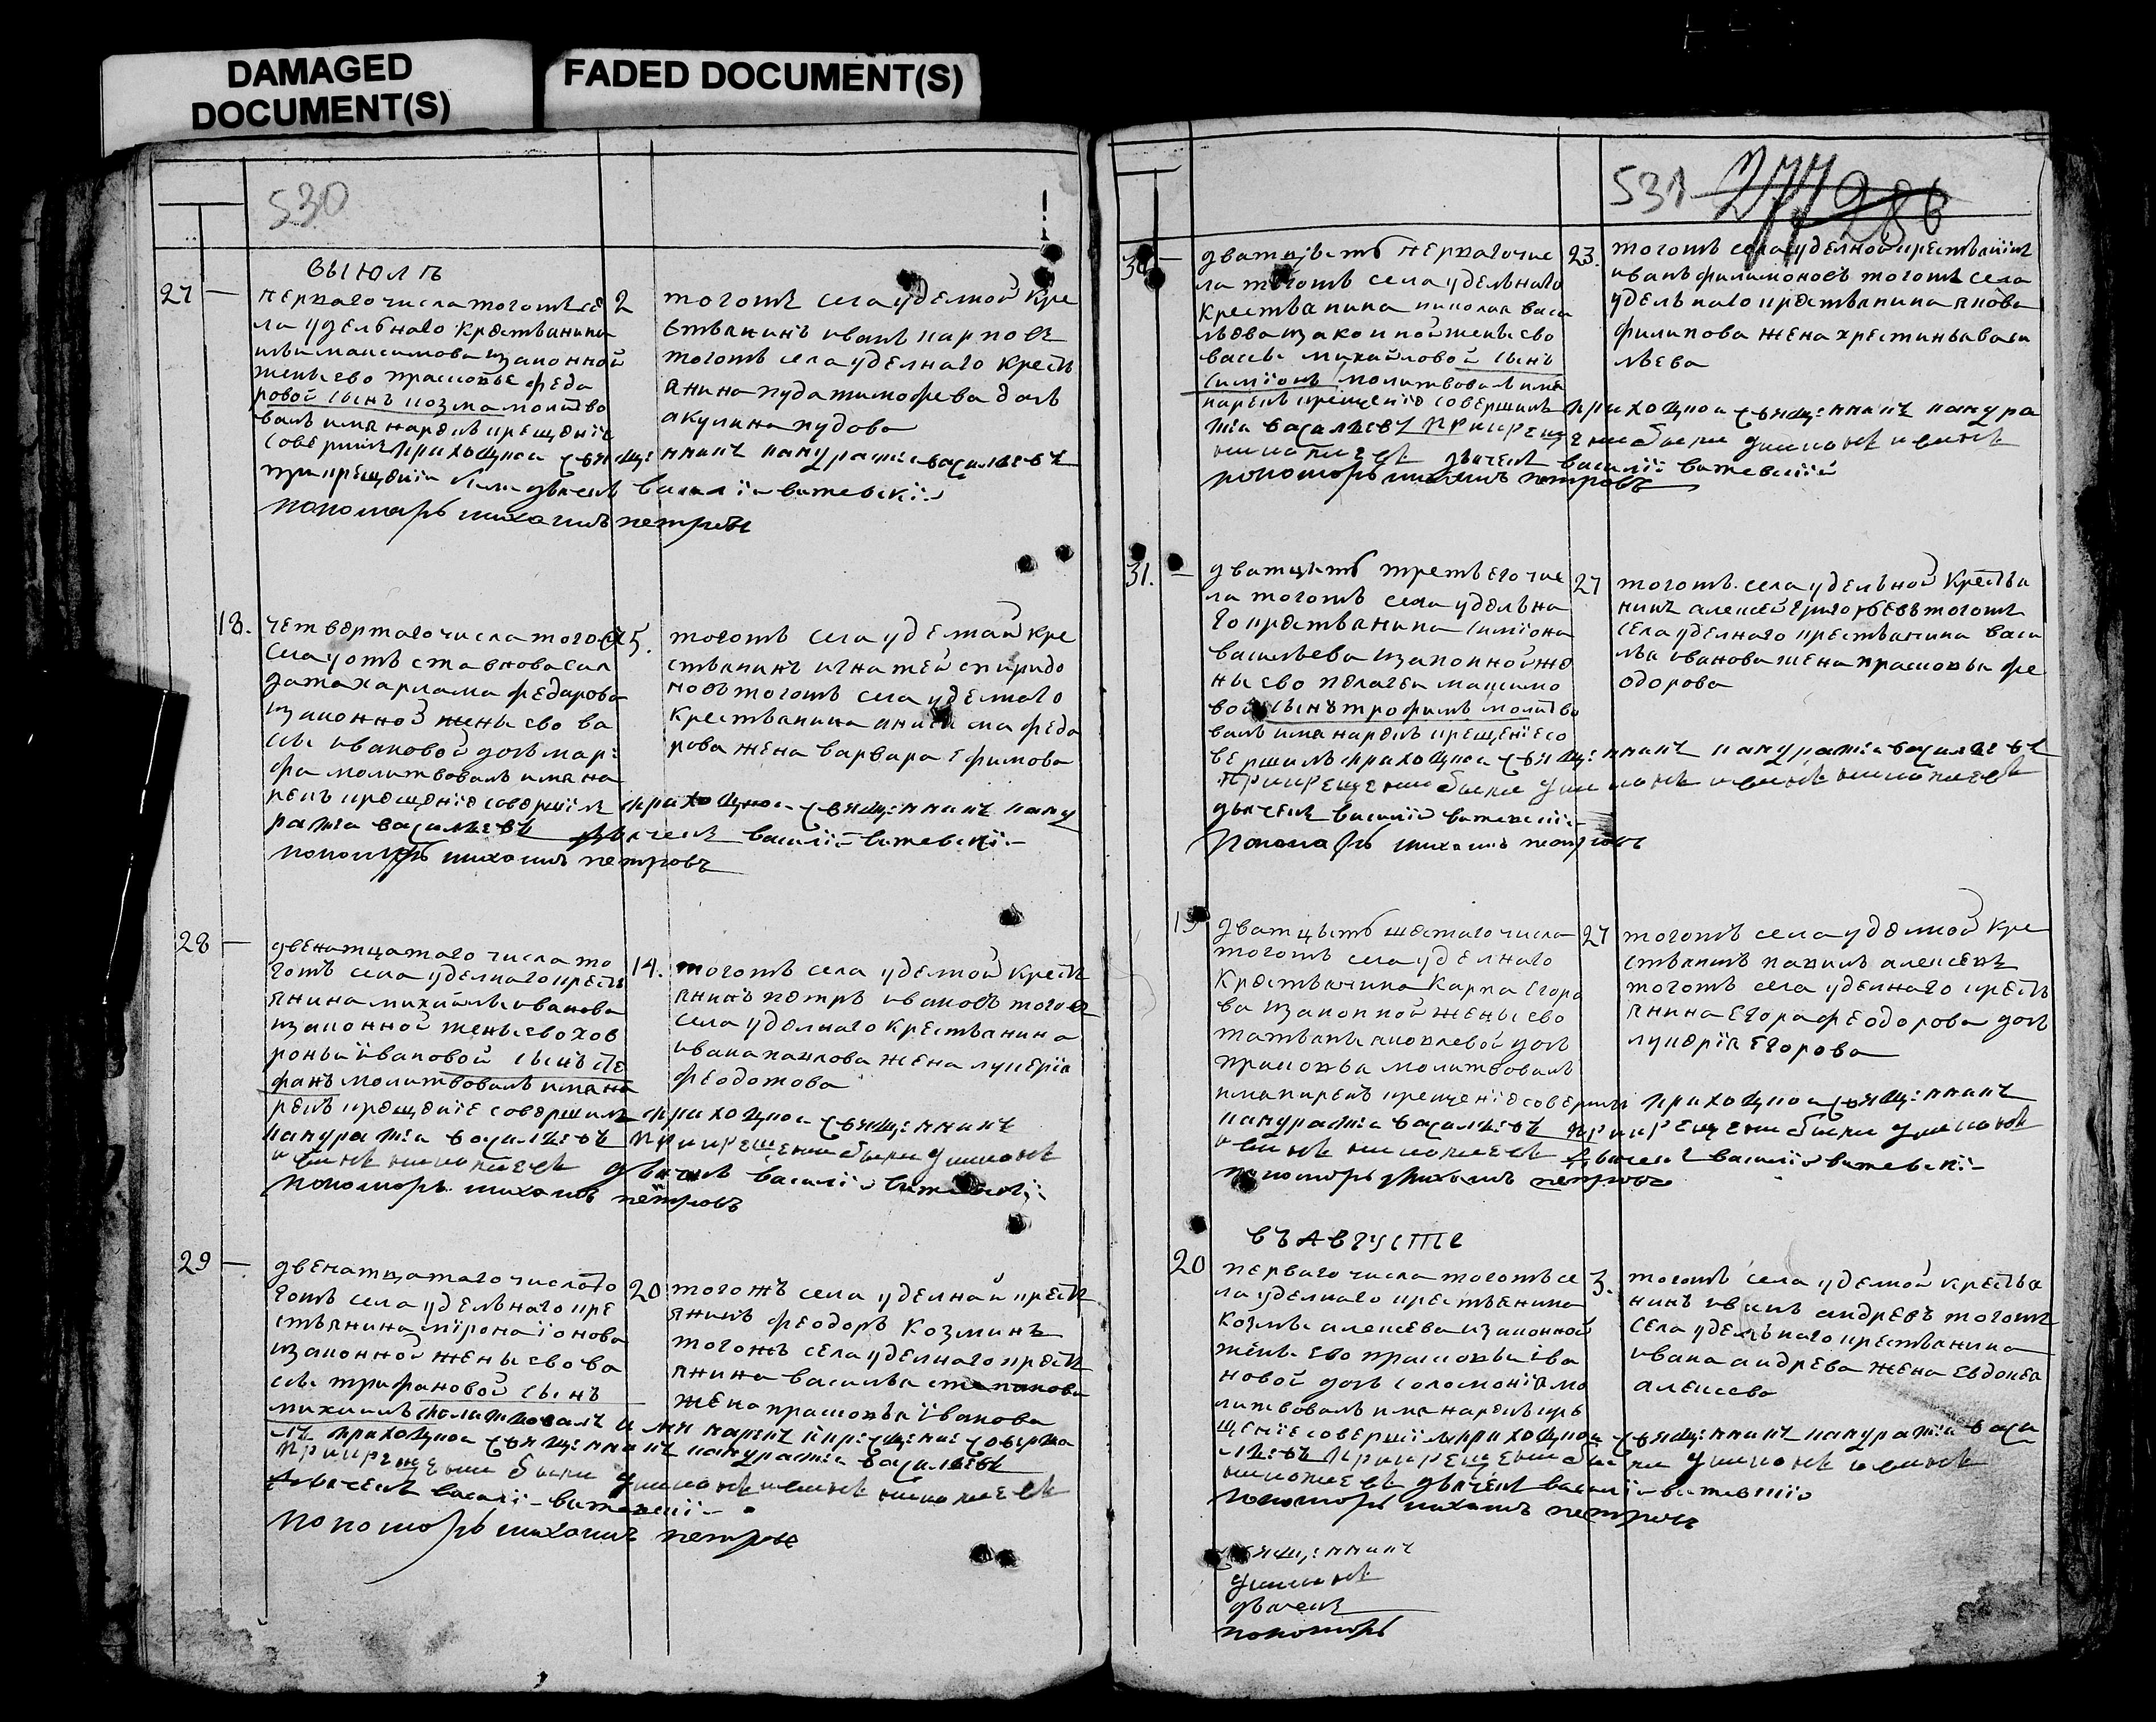 DAMAGED
DOCUMENT(S)
FADED DOCUMENT(S)
530
выюлѣ
27 —
перваго числа тогожъ се
ла удельнаго крестьянина
максимова изаконной
жены ево прасковье феда
ровой сынъ козма молитво
валъ имя нарекъ крещение
совершилъ приходцкой священникъ панкратiй васильевъ
при крещенiи былъ дьячекъ василiй витевскiй
пономарь михаилъ петровъ
2
тогожъ села уделной кре
стьянинъ иванъ карповъ
тогожъ села уделнаго кресть
янина пуда тимофеева дочь
акулина пудова
18.
четвертаго числа тогожъ
села отъставнова сол
дата харлама федарова
изаконной жены ево ва
сы ивановой дочь мар
фа молитвовалъ имя на
рекъ крещенiе совершилъ приходцкой священникъ панк
ратiй васильевъ дьячекъ василiй витевскiй
пономарь михаилъ петровъ
5.
тогожъ села уделной кре
стьянинъ игнатей спиридо
новъ тогожъ села уделнаго
крестьянина анисима феда
рова жена варвара ефимова
28 —
двенатцатаго числа то
гожъ села уделнаго кресть
янина михайлы иванова
изаконной жены ево хов
роньи ивановой сынъ сте
фанъ молитвовалъ имя на
рекъ крещенiе совершилъ приходцкой священникъ
панкратiй васильевъ при крещенiи были дьяконъ
iвлiевъ николаевъ дьячекъ василiй витевскiй
пономарь михаилъ петровъ
14.
тогожъ села уделной кресть
янинъ петръ ивановъ тогожъ
села уделнаго крестьянина
ивана павлова жена лукерiя
феодотова
29 —
двенатцатаго числа то
гожъ села удельнаго кре
стьянина мiрона iонова
изаконной жены ево ва
сы трифановой сынъ
михаилъ молитвовалъ имя нарекъ крещение соверши
лъ приходцкой священникъ панкратiй васильевъ
при крещенiи были
дьячекъ василiй витевскiй
пономарь михаилъ петровъ
20
тогожъ села уделнай кресть
янинъ феодоръ козминъ
тогожъ села уделнаго кресть
янина василья степанова
жена прасковья iванова
531 277 286
30 —
дватцать перваго чис
ла тогожъ села удельнаго
крестьянина николая васи
льева изаконной жены ево
васы михайловой сынъ
симiонъ молитвовалъ имя
нарекъ крещенiе совершилъ приходцкой священникъ панкра
тiй васильевъ при крещенiи были дьяконъ
дьячекъ василiй витевскiй
пономарь михаилъ петровъ
23.
тогожъ села уделной крестьянинъ
иванъ филимоновъ тогожъ села
удельнаго крестьянина якова
филипова жена хрестинья васи
льева
31. —
дватцать третьего чис
ла тогожъ села удельна
го крестьянина симiона
васильева изаконной же
ны ево пелагеи максимо
вой сынъ трофимъ молитво
валъ имя нарекъ крещенiе со
вершилъ приходцкой священникъ панкратiй васильевъ
при крещенiи были
дьячекъ василiй витевскiй
пономарь михаилъ петровъ
27
тогожъ села удельной крестья
нинъ алексей григорьевъ тогожъ
села уделнаго крестьянина васи
лья иванова жена прасковья фе
одорова
19
дватцать шестаго числа
тогожъ села уделнаго
крестьянина карпа егоро
ва изаконной жены ево
татьяны яковлевой дочь
прасковья молитвовалъ
имя нарекъ крещенiе совершилъ приходцкой священникъ
панкратiй васильевъ при крещенiи были дьяконъ
дьячекъ василiй витевскiй
пономарь михаилъ петровъ
27
тогожъ села уделной кре
стьянинъ павилъ алексеевъ
тогожъ села уделнаго кресть
янина егора феодорова дочь
лукерiя егорова
въ августе
20
перваго числа тогожъ се
ла уделнаго крестьянина
козмы алексева изаконной
жены ево прасковьи ива
новой дочь соломонiя мо
литвовалъ имя нарекъ кре
щенiе совершилъ приходцкой священникъ панкратiй васи
льевъ при крещенiи были дьяконъ
дьячекъ василiй витевскiй
пономарь михаилъ петровъ
3.
тогожъ села уделной крестья
нинъ иванъ андревъ тогожъ
села удельнаго крестьянина
ивана андрева жена евдокея
алексева
священникъ
дьяконъ
дьячекъ
пономарь